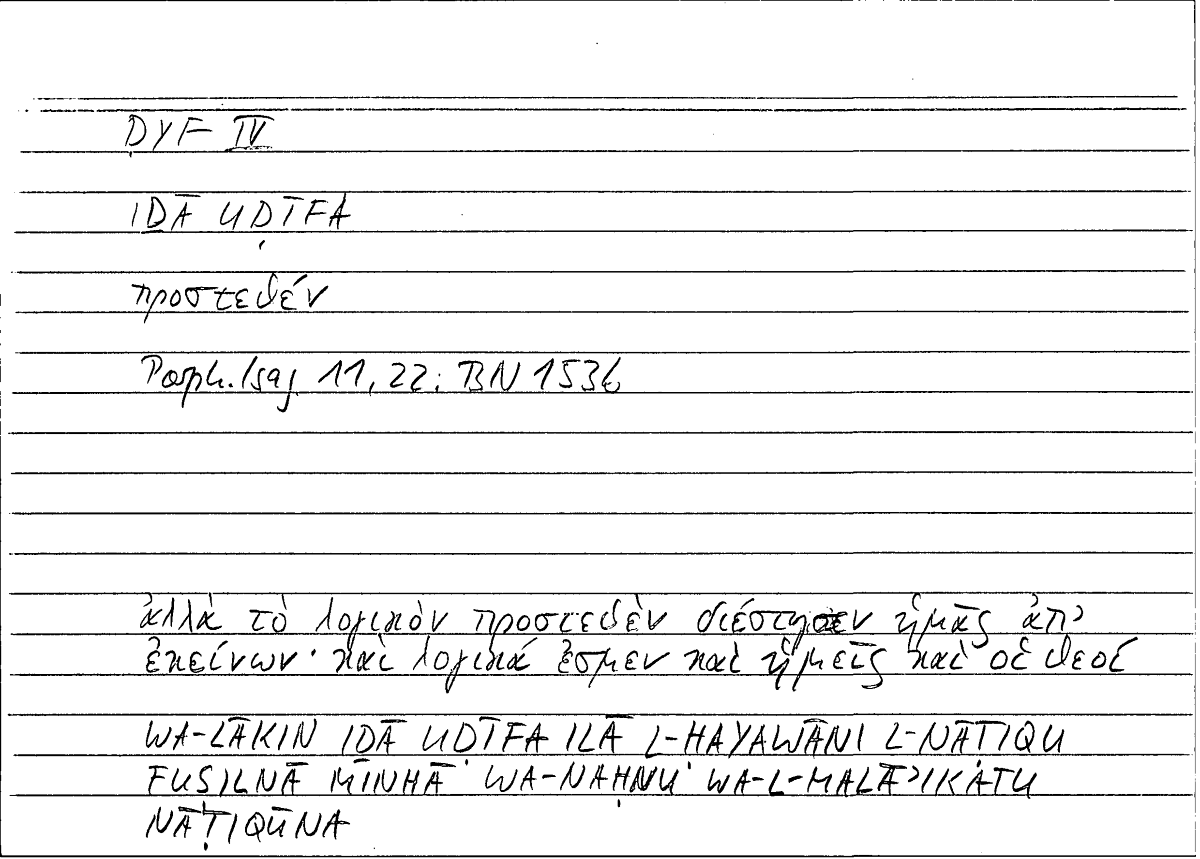 ḌYF IV
IḎĀ UḌĪFA
προστεθέν
Porph. Isag. 11, 22; BN 1536
ἀλλὰ τὸ λογικὸν προστεθὲν διέστησεν ἡμᾶς ἀπ’
ἐκείνων· καὶ λογικά ἐσμεν καὶ ἡμεῖς καὶ οἱ θεοί
WA-LĀKIN IḎĀ UḌĪFA ILĀ L-ḤAYAWĀNI L-NĀṬIQU
FUṢILNĀ MINHĀ WA-NAḤNU WA-L-MALĀʾIKATU
NĀṬIQŪNA